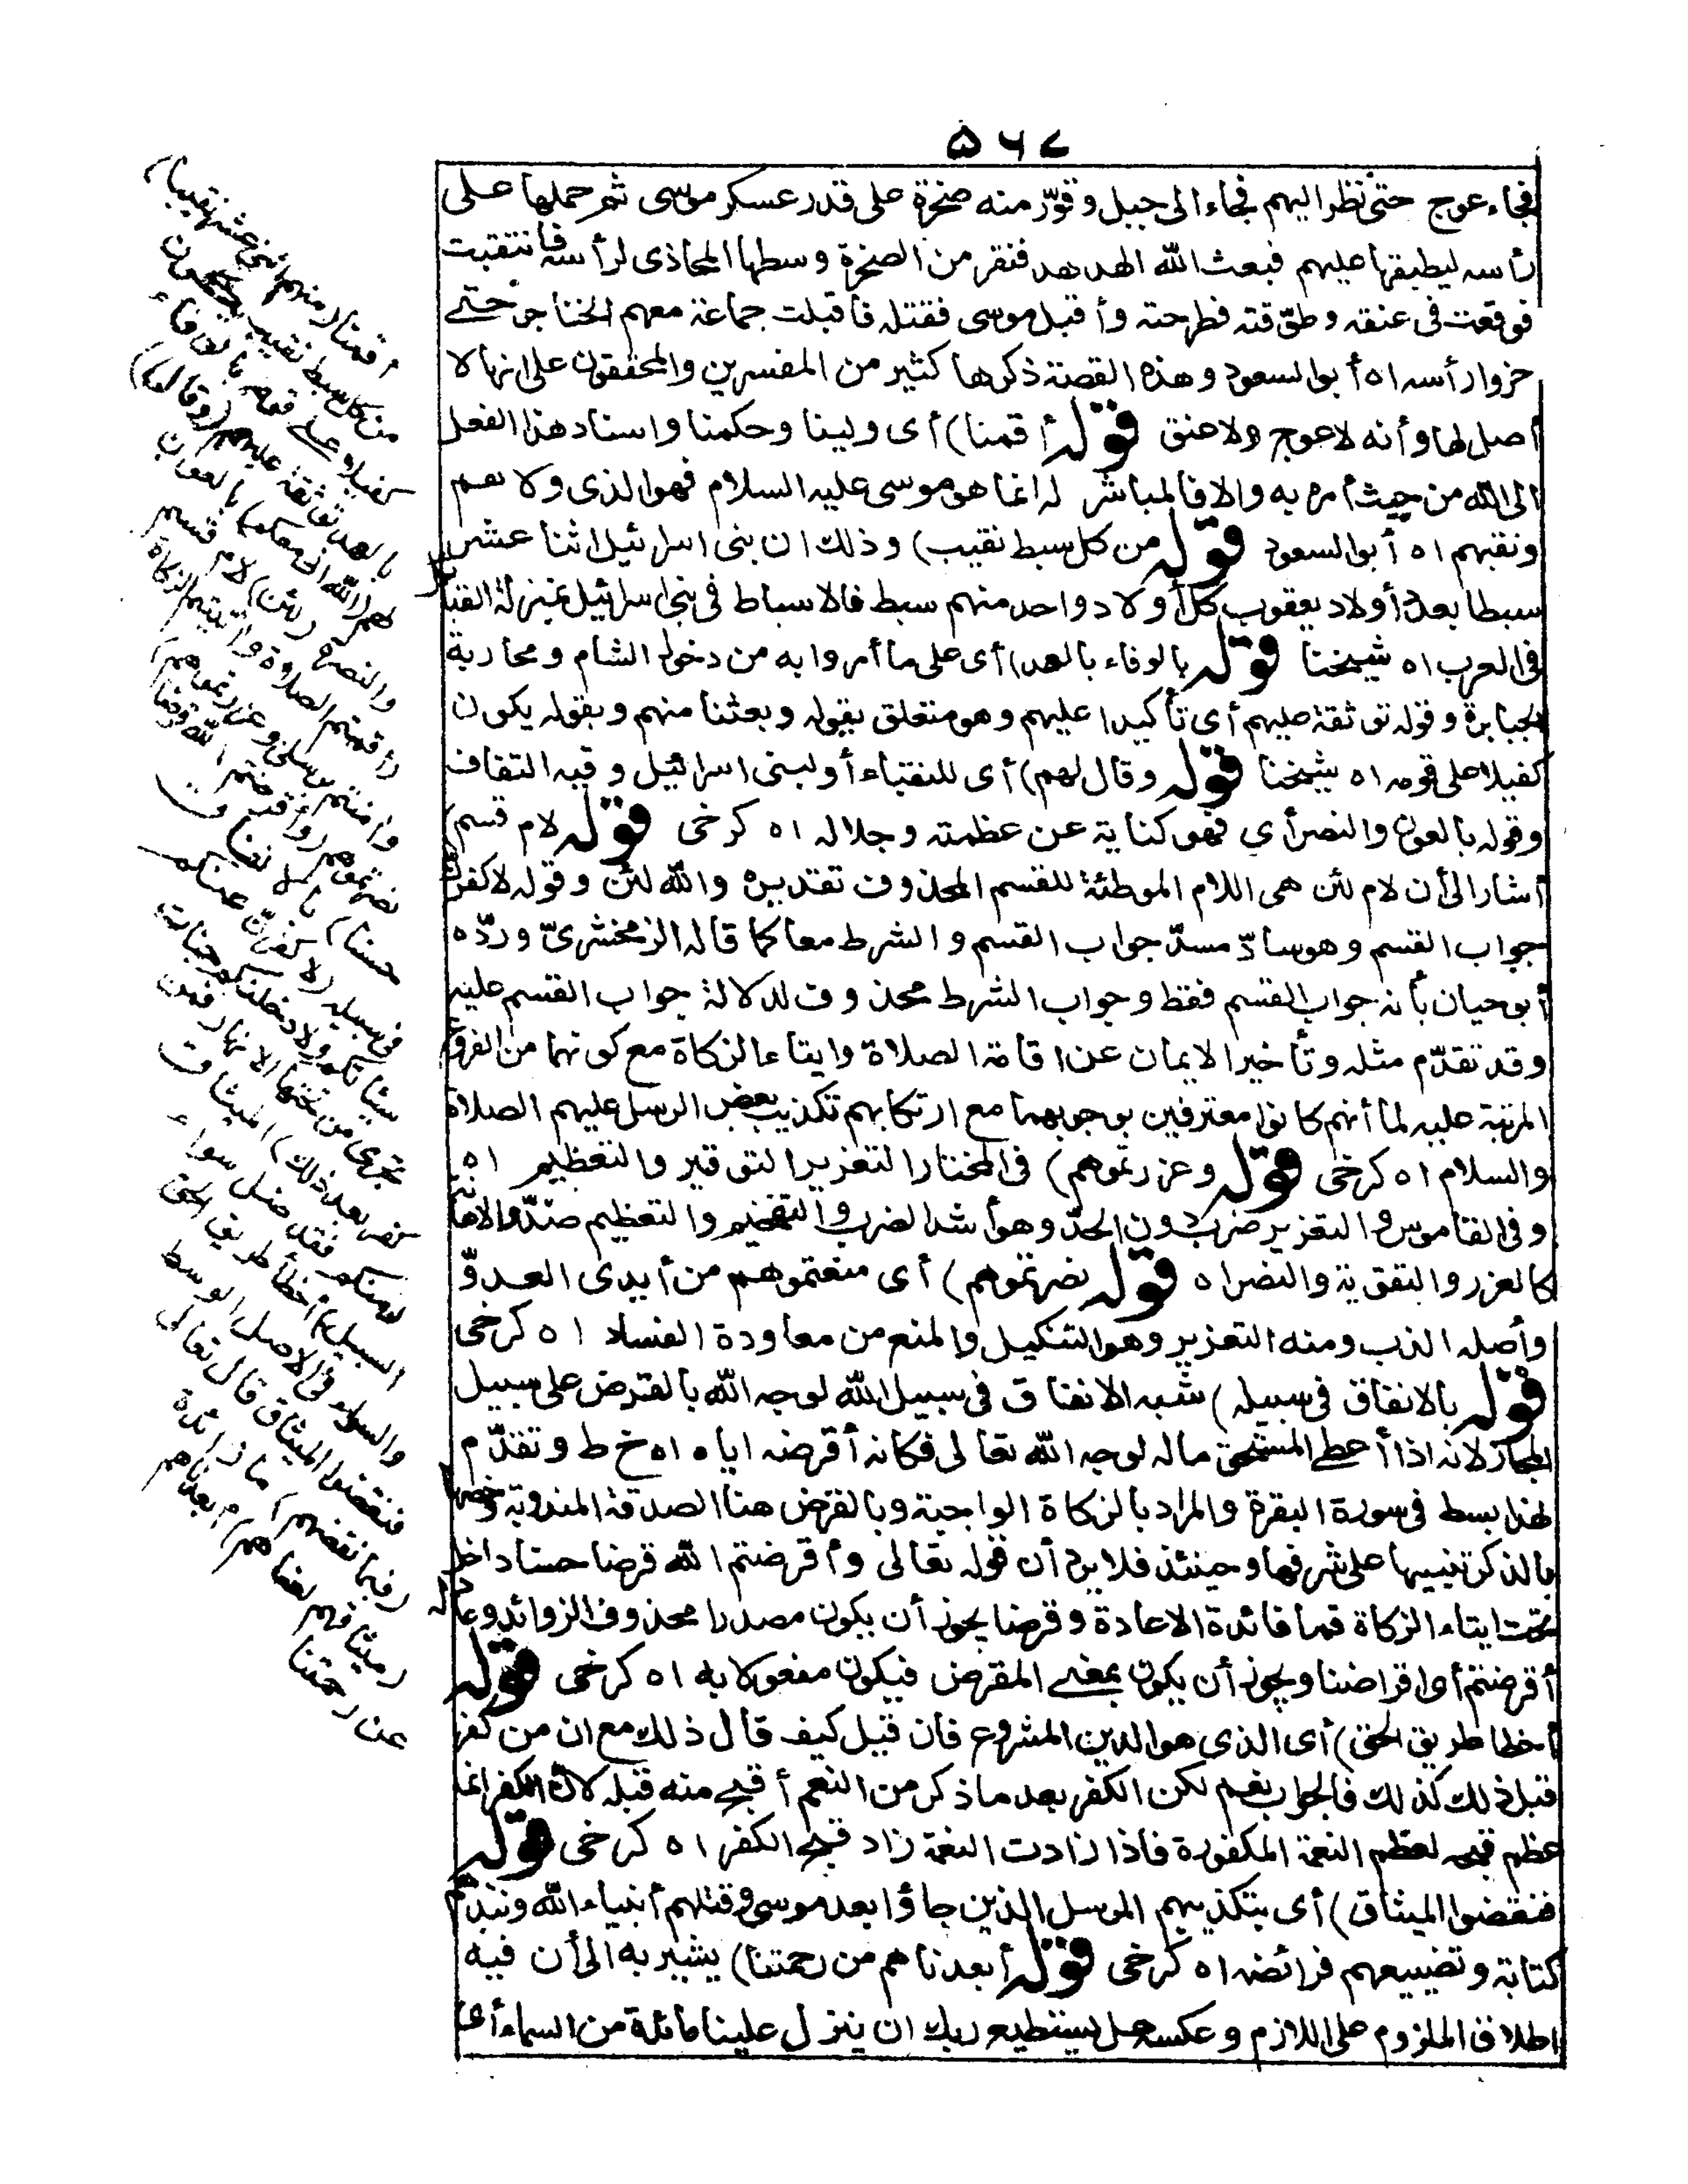 ۵۶۷
فجاء عوج حتى نظر اليهم فجاء الى جبل وقوّر منه صخرة على قدر عسكر موسى ثم حملها على
رأسه ليطبقها عليهم فبعث الله الهدهد فنقر من الصخرة وسطها المحاذى لرأسه فانتقبت
فوقعت فى عنقه وطوّقته فطرحته وأقبل موسى فقتله فاقبلت جماعة معهم الخناجر حتى
حزوا رأسه اه أبو السعود وهذه القصة ذكرها كثير من المفسرين والمحققون على انها لا
أصل لها وأنه لا عوج ولا عنق قوله أقمنا) أى ولينا وحكمنا واسناد هذا الفعل
الى الله من حيث أمره به والا فالمباشر له انما هو موسى عليه السلام فهو الذى ولاهم
ونقبهم اه أبو السعود قوله من كل سبط نقيب) وذلك ان بنى اسرائيل اثنا عشر
سبطا بعدد أولاد يعقوب كل أولاد واحد منهم سبط فالاسباط فى بنى اسرائيل بمنزلة القبائل
فى العرب اه شيخنا قوله بالوفاء بالعهد) أى على ما أمروا به من دخول الشام ومحاربة
الجبابرة وقوله توثقة عليهم أى تأكيدا عليهم وهو متعلق بقوله وبعثنا منهم وبقوله يكون
كفيلا على قومه اه شيخنا قوله وقال لهم) أى للنقباء أو لبنى اسرائيل وفيه التفات
وقوله بالعون والنصر أى فهو كناية عن عظمته وجلاله اه كرخى قوله لام قسم)
أشار الى أن لام لئن هى اللام الموطئة للقسم المحذوف تقديره والله لئن وقوله لاكفرن
جواب القسم وهو سادّ مسدّ جواب القسم والشرط معا كما قاله الزمخشرىّ وردّه
أبو حيان بأنه جواب القسم فقط وجواب الشرط محذوف لدلالة جواب القسم عليه
وقد تقدّم مثله وتأخير الايمان عن اقامة الصلاة وايتاء الزكاة مع كونهما من الفروع
المرتبة عليه لما أنهم كانوا معترفين بوجوبهما مع ارتكابهم تكذيب بعض الرسل عليهم الصلاة
والسلام اه كرخى قوله وعزرتموهم) فى المختار التعزير التوقير والتعظيم اه
وفى القاموس والتعزير ضرب دون الحدّ وهو أشد الضرب والتفخيم والتعظيم ضدّ والاعانة
كالعزر والتقوية والنصر اه قوله نصرتموهم) أى منعتموهم من أيدى العدوّ
وأصله الذب ومنه التعزير وهو التنكيل والمنع من معاودة الفساد اه كرخى
قوله بالانفاق فى سبيله) شبه الانفاق فى سبيل الله لوجه الله بالقرض على سبيل
المجاز لانه اذا أعطى المستحق ماله لوجه الله تعالى فكانه أقرضه اياه اه خط وتقدّم
لهذا بسط فى سورة البقرة والمراد بالزكاة الواجبة وبالقرض هنا الصدقة المندوبة وخصها
بالذكر تنبيها على شرفها وحينئذ فلا يرد أن قوله تعالى وأقرضتم الله قرضا حسنا داخل
تحت ايتاء الزكاة فما فائدة الاعادة وقرضا يجوز أن يكون مصدرا محذوف الزوائد وعامله
أقرضتم أى اقراضا ويجوز أن يكون بمعنى المقرض فيكون مفعولا به اه كرخى قوله
أخطا طريق الحق) أى الذى هو الدين المشروع فان قيل كيف قال ذلك مع ان من كفر
قبل ذلك كذلك فالجواب نعم لكن الكفر بعد ما ذكر من النعم أقبح منه قبله لان الكفر انما
عظم قبحه لعظم النعمة المكفورة فاذا زادت النعمة زاد قبح الكفر اه كرخى قوله
فنقضوا الميثاق) أى بتكذيبهم الرسل الذين جاؤا بعد موسى وقتلهم أنبياء الله ونبذهم
كتابه وتضييعهم فرائضه اه كرخى قوله أبعدناهم من رحمتنا) يشير به الى أن فيه
اطلاق الملزوم على اللازم وعكسه هل يستطيع ربك ان ينزل علينا مائدة من السماء أى
أقمنا (منهم اثنى عشر نقيبا)
من كل سبط نقيب يكون
كفيلا على قومه بالوفاء
بالعهد توثقة عليهم (وقال)
لهم (الله انى معكم) بالعون
والنصر (لئن) لام قسم
(أقمتم الصلاة وآتيتم الزكاة
وآمنتم برسلى وعزرتموهم)
نصرتموهم (وأقرضتم الله قرضا
حسنا) بالانفاق
فى سبيله (لاكفرن عنكم
سيئاتكم ولادخلنكم جنات
تجرى من تحتها الانهار فمن
كفر بعد ذلك) الميثاق
(منكم فقد ضل سواء
السبيل) أخطأ طريق الحق
والسواء فى الاصل الوسط
فنقضوا الميثاق قال تعالى
(فبما نقضهم) ما زائدة
(ميثاقهم لعناهم) أبعدناهم
عن رحمتنا